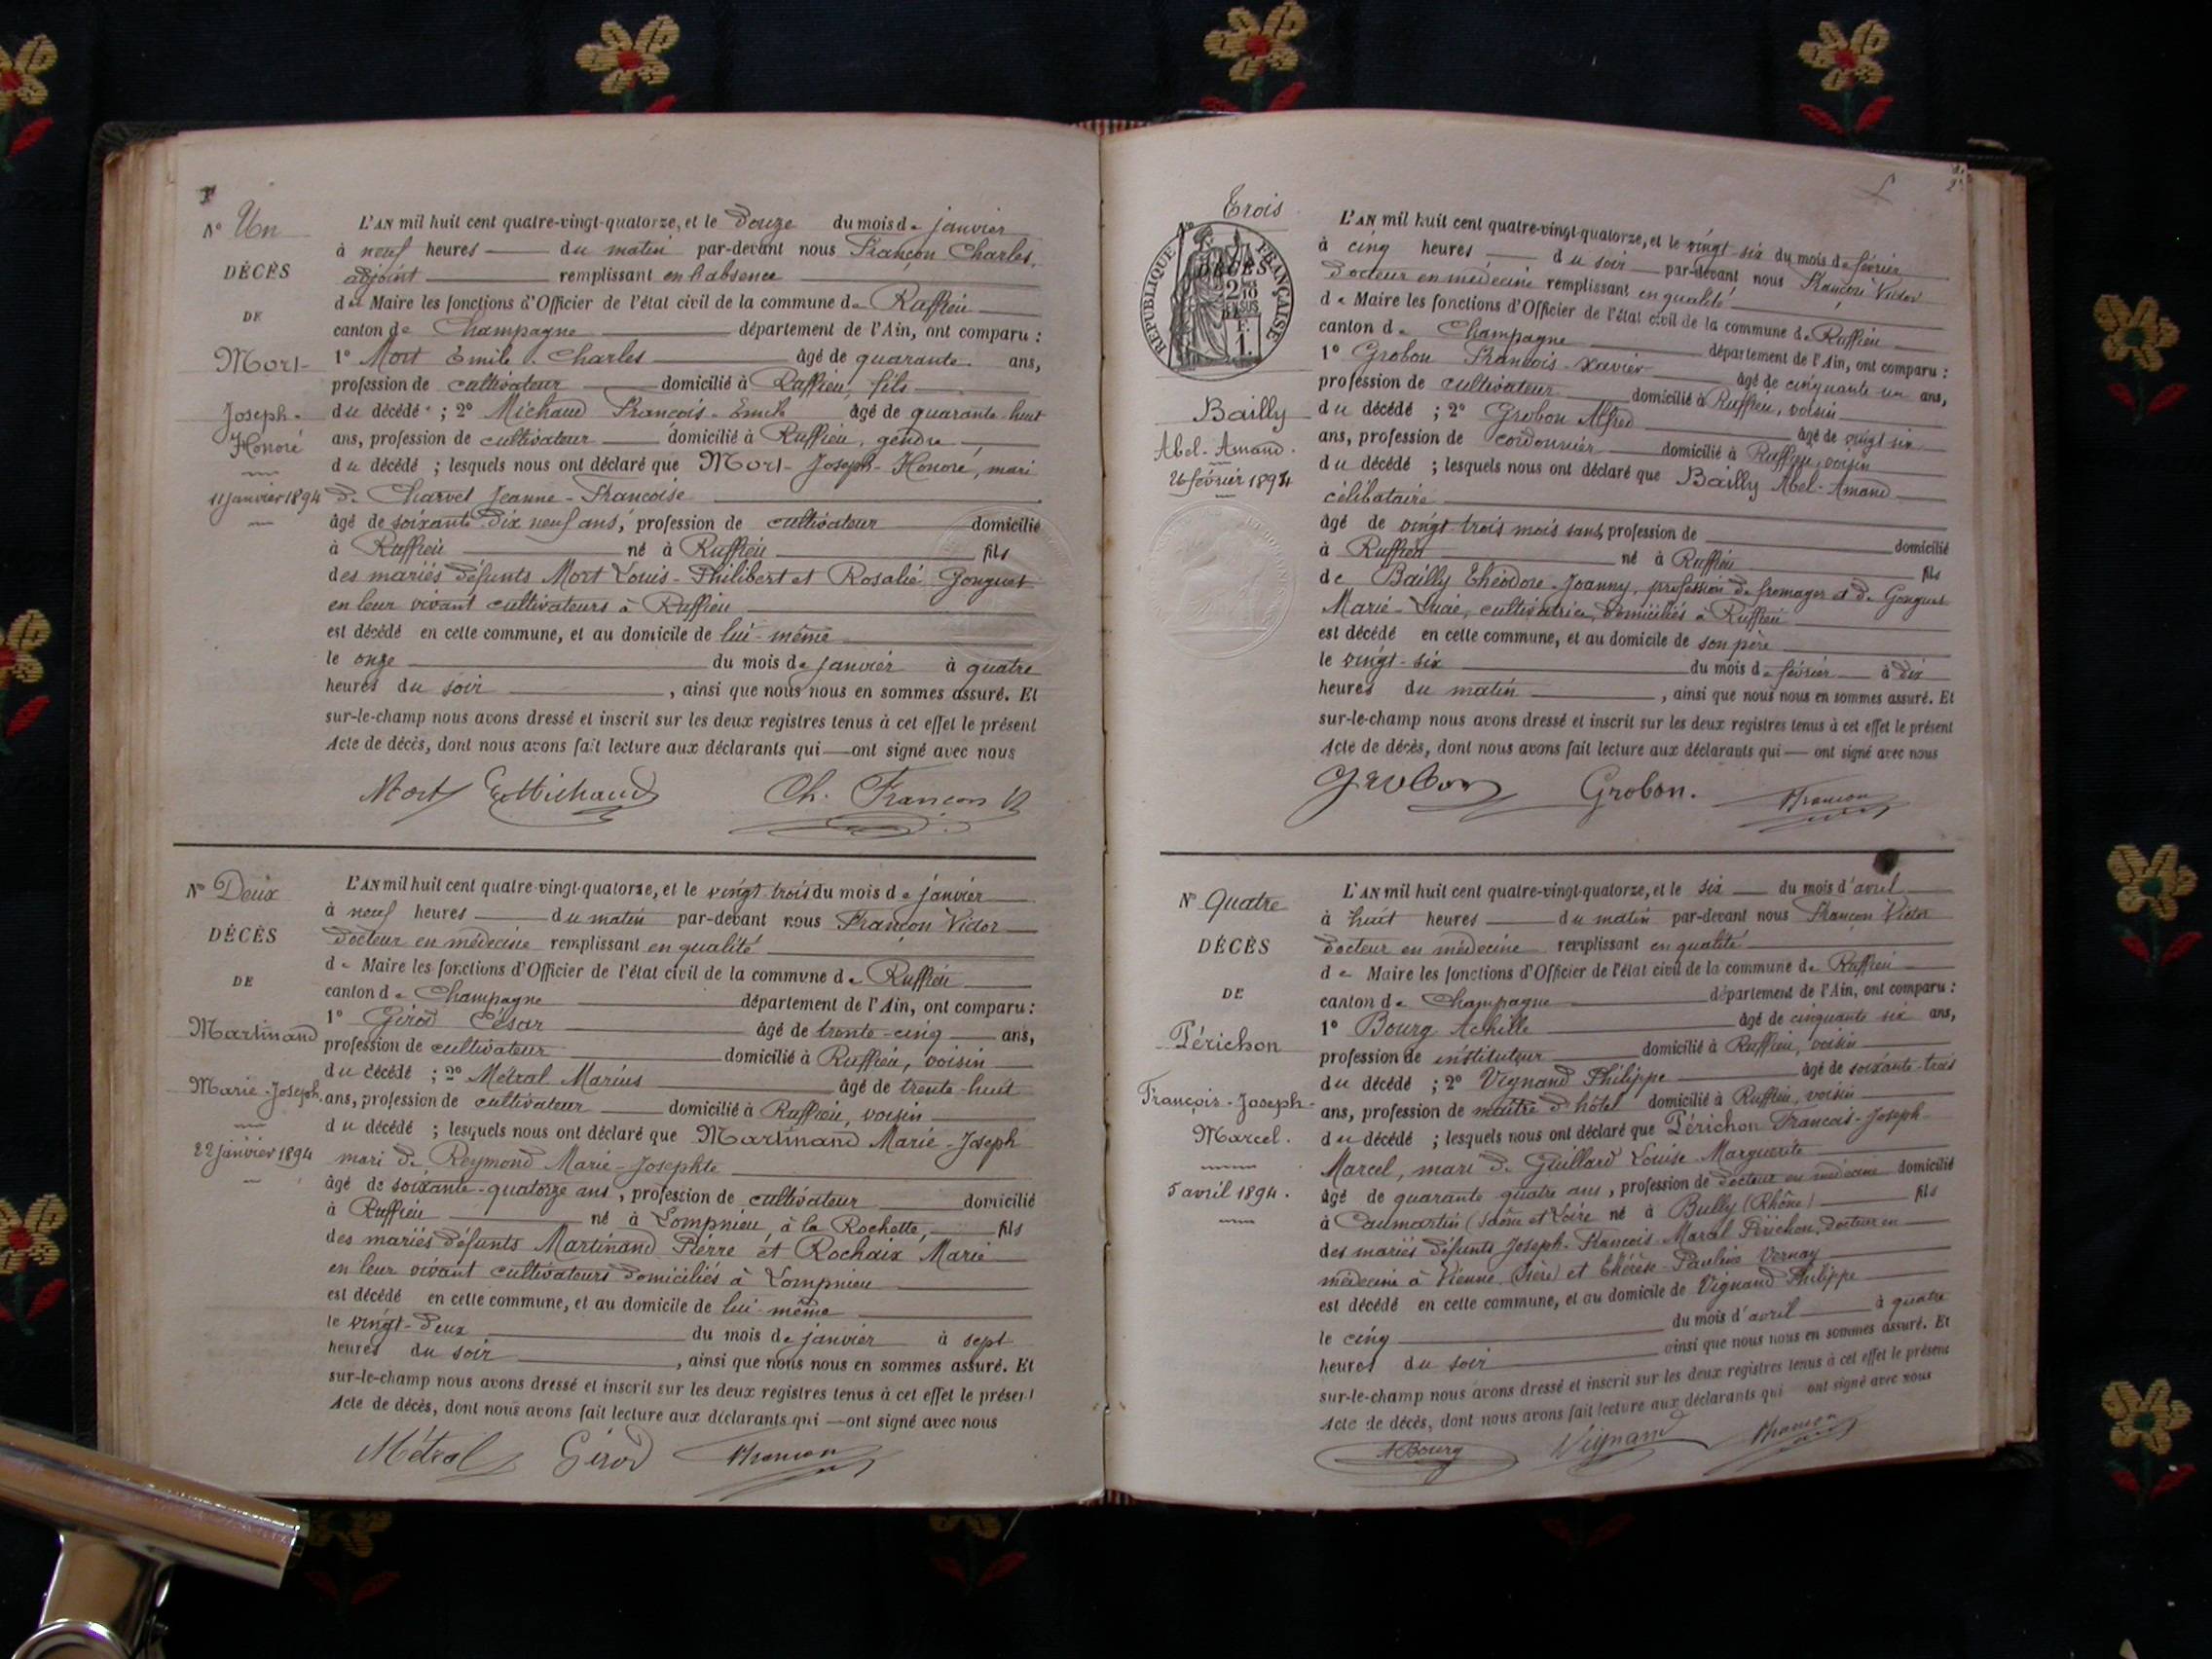 N° Un
DÉCÈS
DE
Mort
Joseph-
Honoré
11 janvier 1894
L'AN mil huit cent quatre-vingt-quatorze, et le douze du mois de janvier
à neuf heures du matin par-devant nous Françon Charles,
adjoint remplissant en l'absence
du Maire les fonctions d'Officier de l'état civil de la commune de Ruffieu
canton de Champagne département de l'Ain, ont comparu :
1° Mort Emile Charles âgé de quarante ans,
profession de cultivateur domicilié à Ruffieu, fils
du décédé ; 2° Michaud François-Emile âgé de quarante-huit
ans, profession de cultivateur domicilié à Ruffieu, gendre
du décédé ; lesquels nous ont déclaré que Mort Joseph-Honoré, mari
de Charvet Jeanne-Françoise
âgé de soixante-dix neuf ans, profession de cultivateur domicilié
à Ruffieu né à Ruffieu fils
des mariés défunts Mort Louis-Philibert et Rosalie Gonguet
en leur vivant cultivateurs à Ruffieu
est décédé en cette commune, et au domicile de lui-même
le onze du mois de janvier à quatre
heures du soir, ainsi que nous nous en sommes assuré. Et
sur-le-champ nous avons dressé et inscrit sur les deux registres tenus à cet effet le présent
Acte de décès, dont nous avons fait lecture aux déclarants qui ont signé avec nous
Mort E. Michaud Ch. Françon
N° Deux
DÉCÈS
DE
Martinand
Marie-Joseph
22 janvier 1894
L'AN mil huit cent quatre-vingt-quatorze, et le vingt-trois du mois de janvier
à neuf heures du matin par-devant nous Françon Victor
docteur en médecine remplissant en qualité
de Maire les fonctions d'Officier de l'état civil de la commune de Ruffieu
canton de Champagne département de l'Ain, ont comparu :
1° Girod César âgé de trente-cinq ans,
profession de cultivateur domicilié à Ruffieu, voisin
du décédé ; 2° Métral Marius âgé de trente-huit
ans, profession de cultivateur domicilié à Ruffieu, voisin
du décédé ; lesquels nous ont déclaré que Martinand Marie-Joseph
mari de Reymond Marie-Josephte
âgé de soixante-quatorze ans, profession de cultivateur domicilié
à Ruffieu né à Lompnieu, à la Rochette, fils
des mariés défunts Martinand Pierre et Rochaix Marie
en leur vivant cultivateurs domiciliés à Lompnieu
est décédé en cette commune, et au domicile de lui-même
le vingt-deux du mois de janvier à sept
heures du soir, ainsi que nous nous en sommes assuré. Et
sur-le-champ nous avons dressé et inscrit sur les deux registres tenus à cet effet le présent
Acte de décès, dont nous avons fait lecture aux déclarants qui ont signé avec nous
Métral Girod Françon
Trois
N°
RÉPUBLIQUE FRANÇAISE
DÉCÈS
Bailly
Abel-Amand.
26 février 1894
L'AN mil huit cent quatre-vingt-quatorze, et le vingt-six du mois de février
à cinq heures du soir par-devant nous Françon Victor
docteur en médecine remplissant en qualité
de Maire les fonctions d'Officier de l'état civil de la commune de Ruffieu
canton de Champagne département de l'Ain, ont comparu :
1° Grobon François-Xavier âgé de cinquante un ans,
profession de cultivateur domicilié à Ruffieu, voisin
du décédé ; 2° Grobon Alfred âgé de vingt six
ans, profession de cordonnier domicilié à Ruffieu, voisin
du décédé ; lesquels nous ont déclaré que Bailly Abel-Amand
célibataire
âgé de vingt-trois mois sans profession de domicilié
à Ruffieu né à Ruffieu fils
de Bailly Théodore-Joanny, profession de fromager et de Gonguet
Marie-Lucie, cultivatrice, domiciliés à Ruffieu
est décédé en cette commune, et au domicile de son père
le vingt-six du mois de février à dix
heures du matin, ainsi que nous nous en sommes assuré. Et
sur-le-champ nous avons dressé et inscrit sur les deux registres tenus à cet effet le présent
Acte de décès, dont nous avons fait lecture aux déclarants qui ont signé avec nous
Grobon Grobon. Françon
N° Quatre
DÉCÈS
DE
Périchon
François-Joseph-
Marcel.
5 avril 1894.
L'AN mil huit cent quatre-vingt-quatorze, et le six du mois d'avril
à huit heures du matin par-devant nous Françon Victor
docteur en médecine remplissant en qualité
de Maire les fonctions d'Officier de l'état civil de la commune de Ruffieu
canton de Champagne département de l'Ain, ont comparu :
1° Bourg Achille âgé de cinquante six ans,
profession de instituteur domicilié à Ruffieu, voisin
du décédé ; 2° Vignand Philippe âgé de soixante-trois
ans, profession de maître d'hôtel domicilié à Ruffieu, voisin
du décédé ; lesquels nous ont déclaré que Périchon François-Joseph
Marcel, mari de Guillard Louise Marguerite
âgé de quarante quatre ans, profession de docteur en médecine domicilié
à Daumartin (Saône et Loire né à Bully (Rhône) fils
des mariés défunts Joseph-François-Marcel Périchon, docteur en
médecine à Vienne (Isère) et Thérèse-Pauline Vernay
est décédé en cette commune, et au domicile de Vignand Philippe
le cinq du mois d'avril à quatre
heures du soir ainsi que nous nous en sommes assuré. Et
sur-le-champ nous avons dressé et inscrit sur les deux registres tenus à cet effet le présent
Acte de décès, dont nous avons fait lecture aux déclarants qui ont signé avec nous
A Bourg Vignand Françon